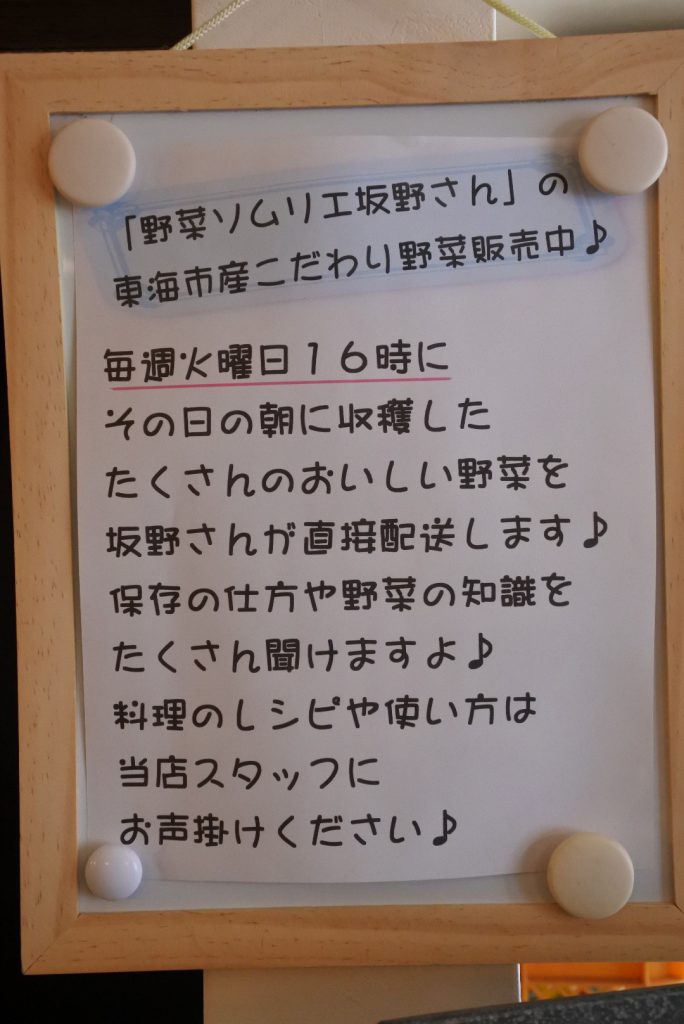 「野菜ソムリエ坂野さん」の
東海市産こだわり野菜販売中♪
毎週火曜日１６時に
その日の朝に収穫した
たくさんのおいしい野菜を
坂野さんが直接配送します♪
保存の仕方や野菜の知識を
たくさん聞けますよ♪
料理のレシピや使い方は
当店スタッフに
お声掛けください♪